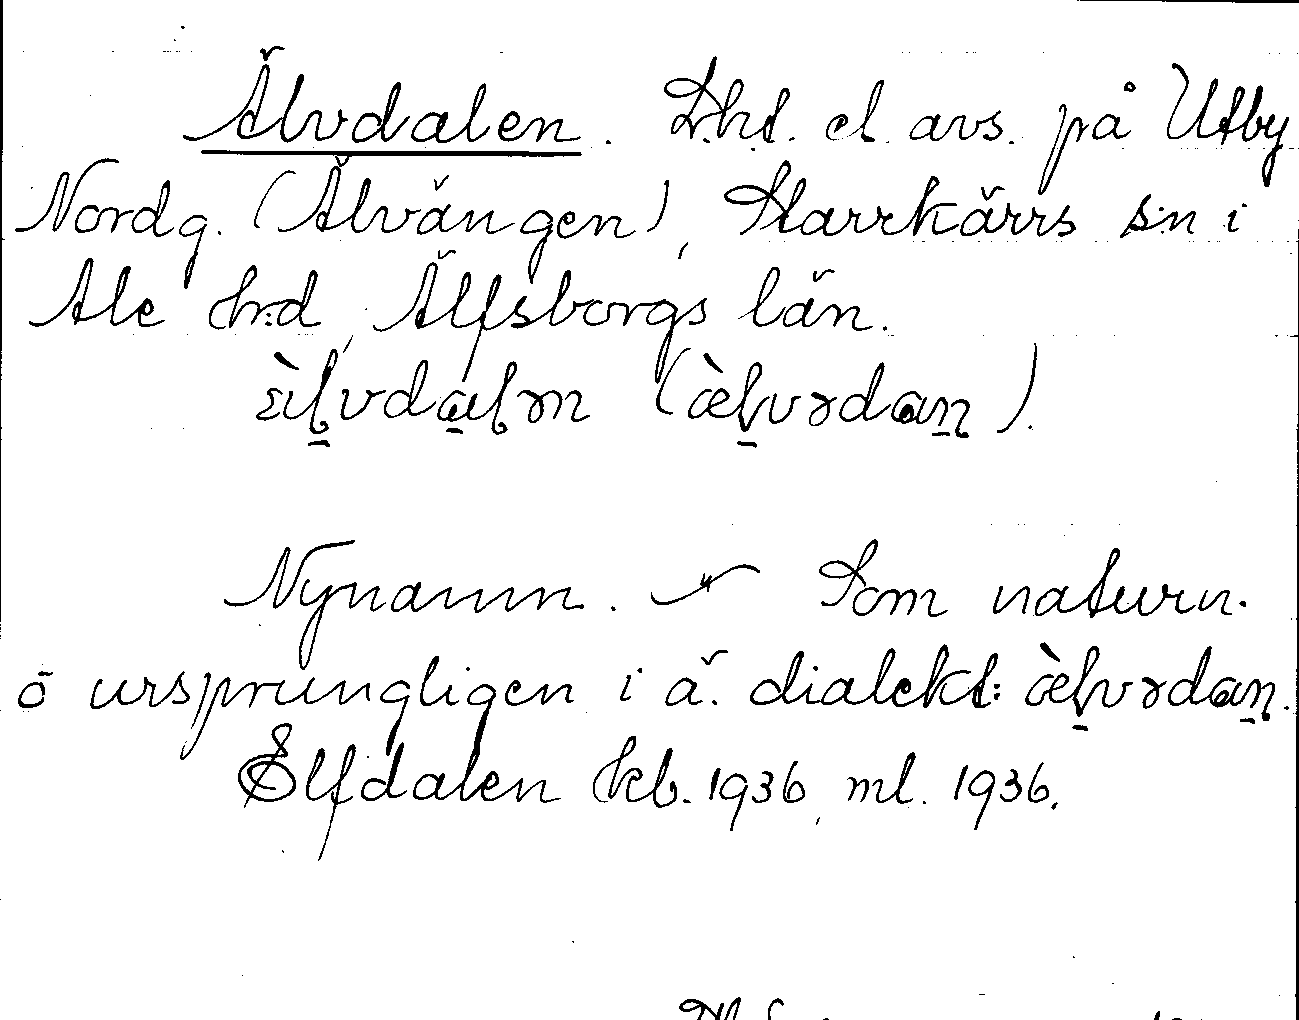 Älvdalen. Lht. el. avs. på Utby
Nordg. (Älvängen), Starrkärrs sn i
Ale hd, Älfsborgs län.
ὲḷvdaḷən (æ̀ḷvədaṇ).
Nynamn. Som naturn.
o ursprungligen i ä. dialekt: æ̀ḷvədaṇ.
Elfdalen kb. 1936, ml. 1936.